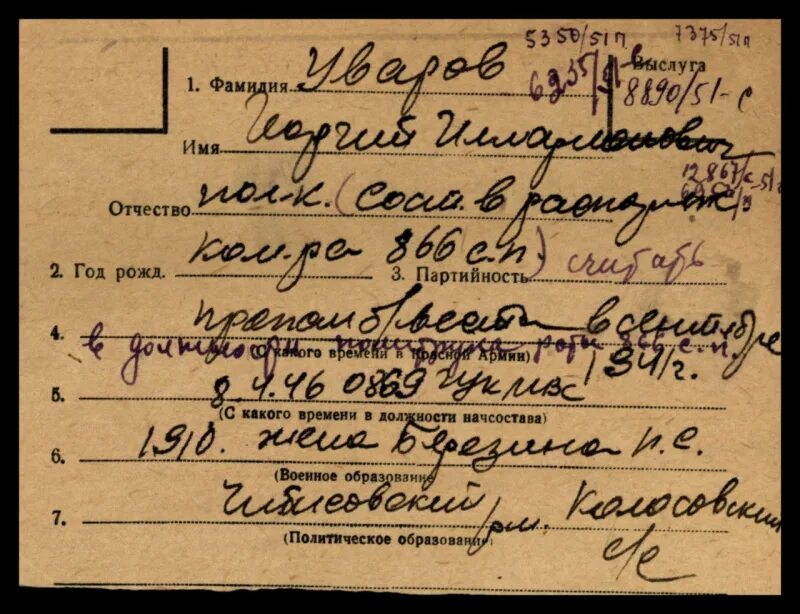 5350/51п 7375/51п
1. Фамилия Уваров 6235/51-с Выслуга
8890/51-с
Имя Георгий Илларионович
12867/с-51
Отчество пол-к. (сост. в распоряж
2. Год рожд. ком-ра 866 с.п.) 3. Партийность считать
4. пропал б/вести в сентябре
в должности политрука роты 866 с.п.
(С какого времени в Красной Армии)
1941г.
5. 8.4.46 0869 ГУК МВС
(С какого времени в должности начсостава)
6. 1910. жена Березина П.С.
(Военное образование)
7. Чибисовский р/н. Колосовский
(Политическое образование)
с/с